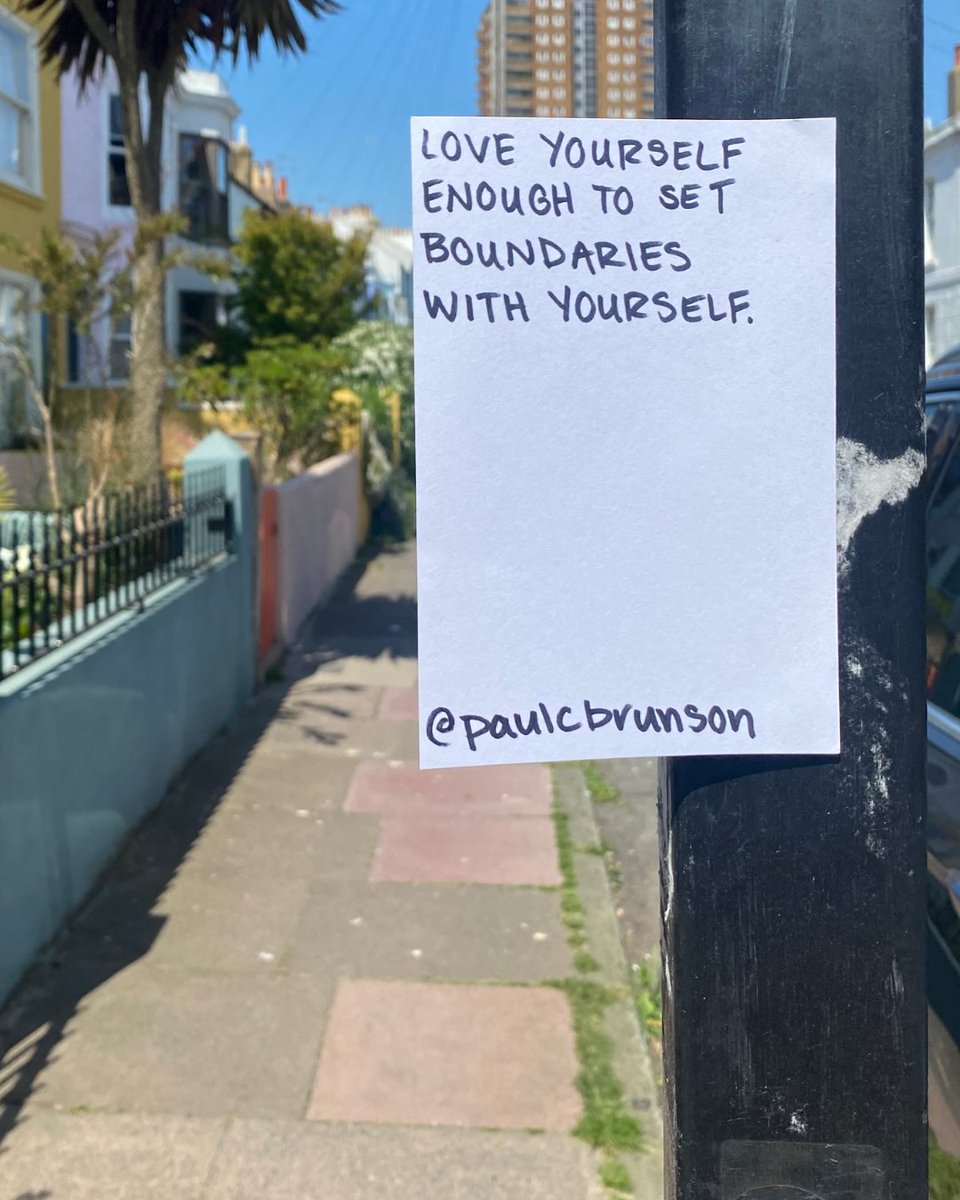 LOVE YOURSELF
ENOUGH TO SET
BOUNDARIES
WITH YOURSELF.
@paulcbrunson